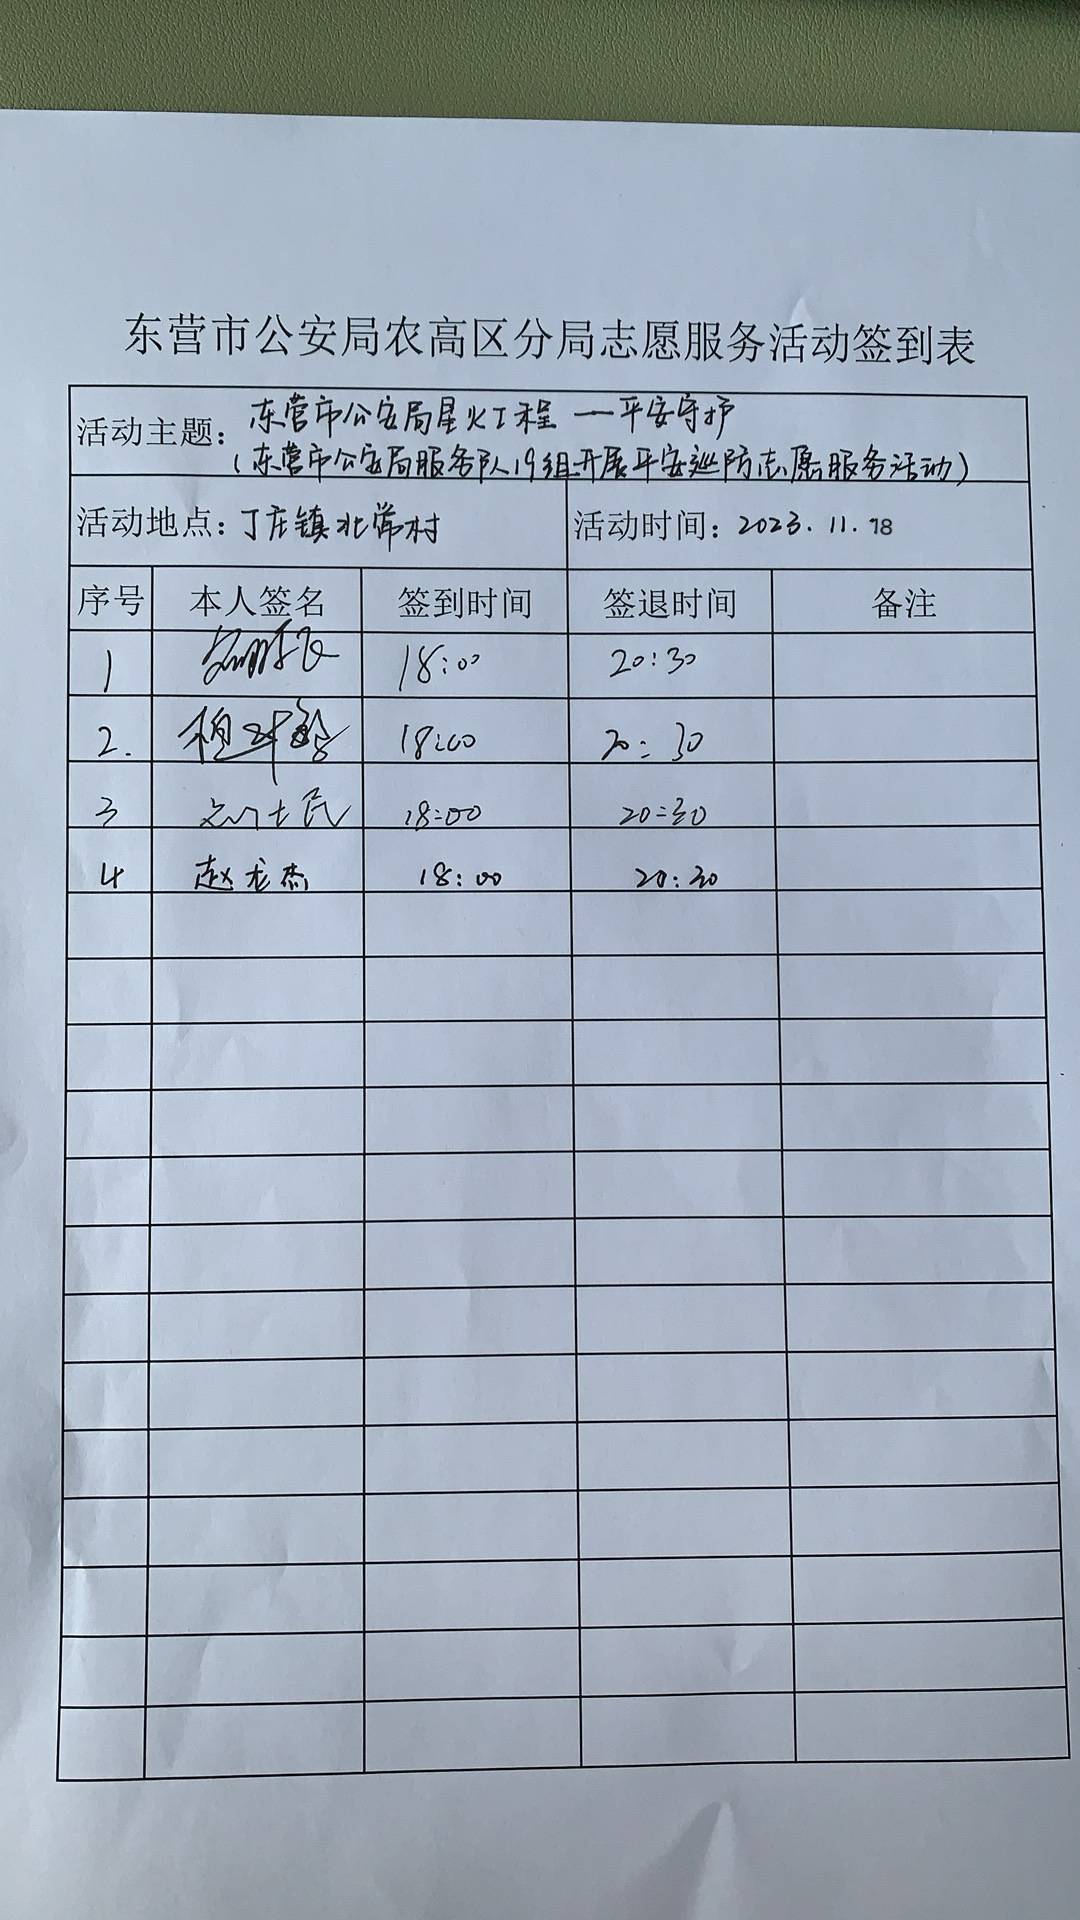 东营市公安局农高区分局志愿服务活动签到表
活动主题：东营市公安局星火工程 一平安守护
（东营市公安局服务队19组开展平安巡防志愿服务活动）
活动地点：丁庄镇北常村 活动时间：2023.11.18
序号 本人签名 签到时间 签退时间 备注
1 18:00 20:30
2. 18:00 20:30
3 18:00 20:30
4 赵龙杰 18:00 20:30